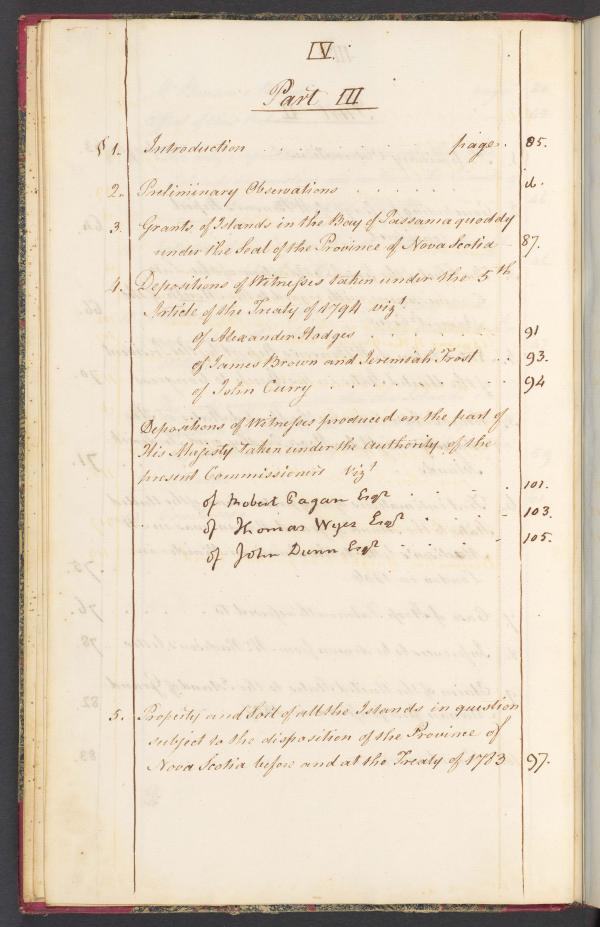 IV.
Part III
§ 1. Introduction . . . . . . page. 85.
2. Preliminary Observations . . . . . . id.
3. Grants of Islands in the Bay of Passamaquoddy
under the Seal of the Province of Nova Scotia 87.
4. Depositions of Witnesses taken under the 5th
Article of the Treaty of 1794 vizt
of Alexander Hodges . . . . . 91
of James Brown and Jeremiah Frost . . 93.
of John Curry . . . . . . 94
Depositions of Witnesses produced on the part of
His Majesty taken under the authority of the
present Commissioners vizt
of Robert Pagan Esqr . . . . 101.
of Thomas Wyer Esqr . . . - 103.
of John Dunn Esqr . . . - 105.
5. Property and Soil of all the Islands in question
subject to the disposition of the Province of
Nova Scotia before and at the Treaty of 1783 97.